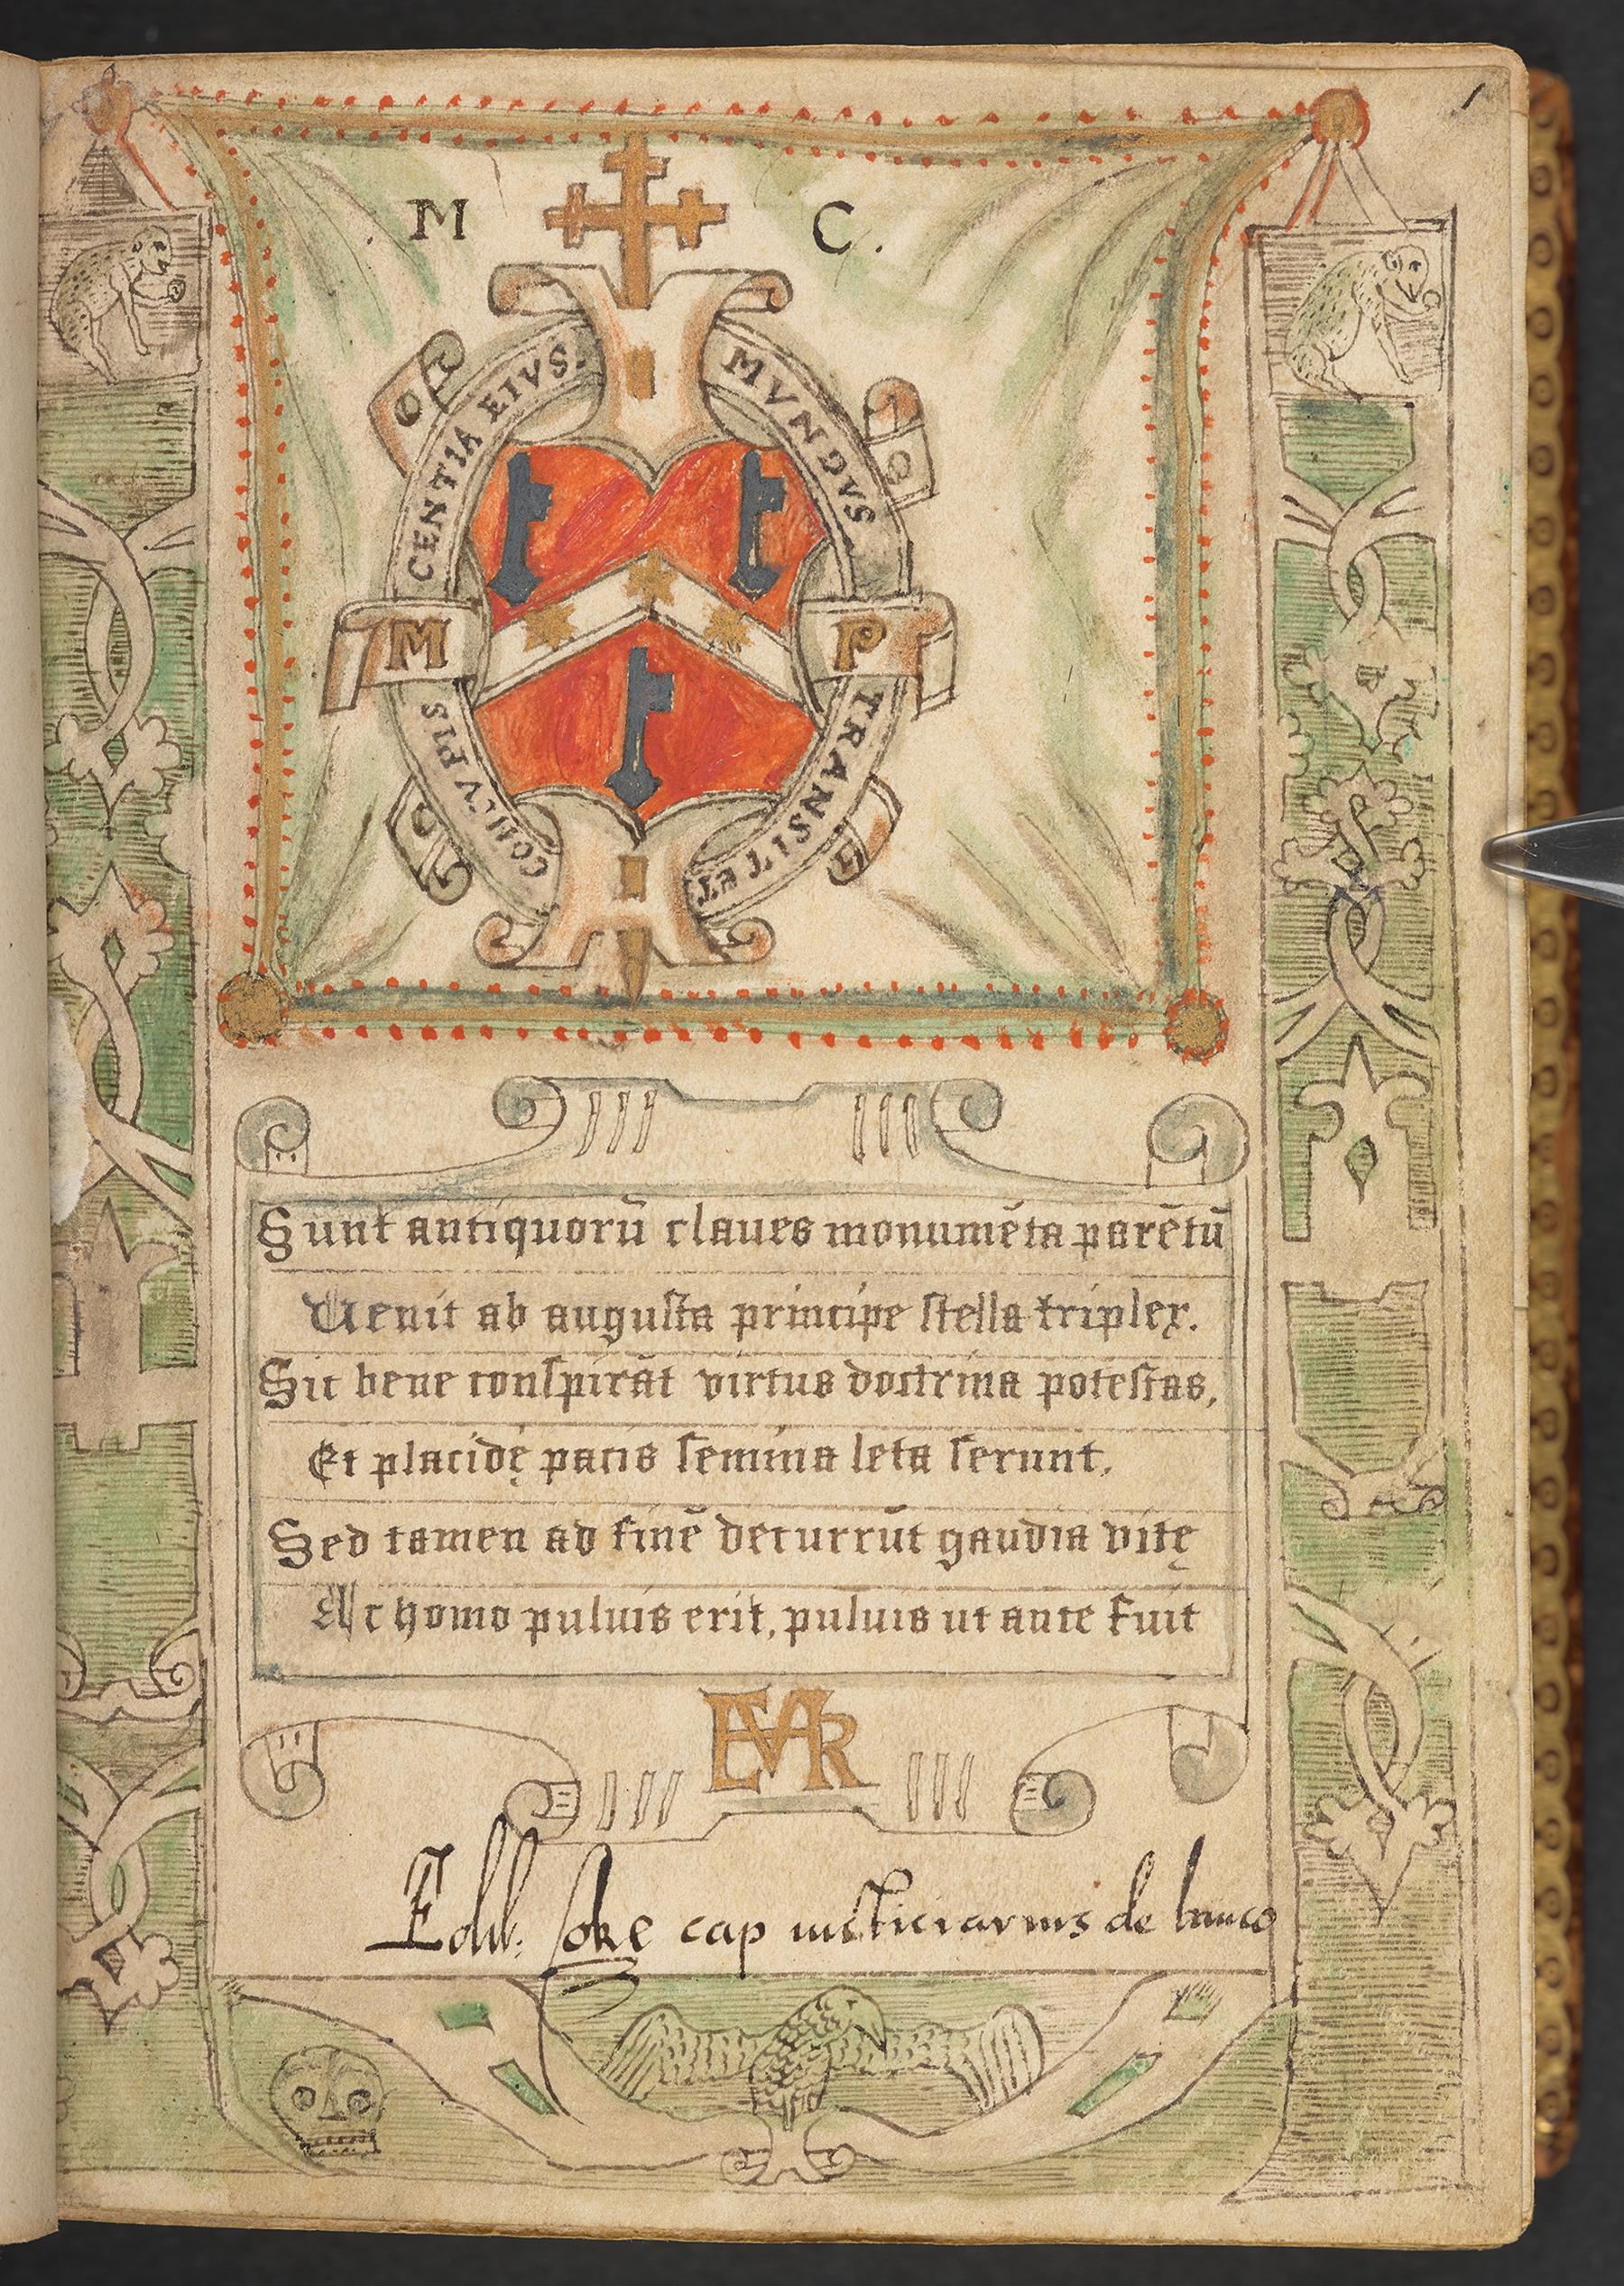 1
. M C .
MVNDVS
TRANSIT ET
CONCVPIS
CENTIA EIVS.
M P
Sunt antiquorū claues monumēta parētū
Uenit ab augusta principe stella triplex.
Sic bene conspirāt virtus doctrina potestas,
Et placidę pacis semina leta serunt.
Sed tamen ad finē decurrūt gaudia vitę
Ac homo puluis erit, puluis ut ante fuit
cap iusticiarius de banco